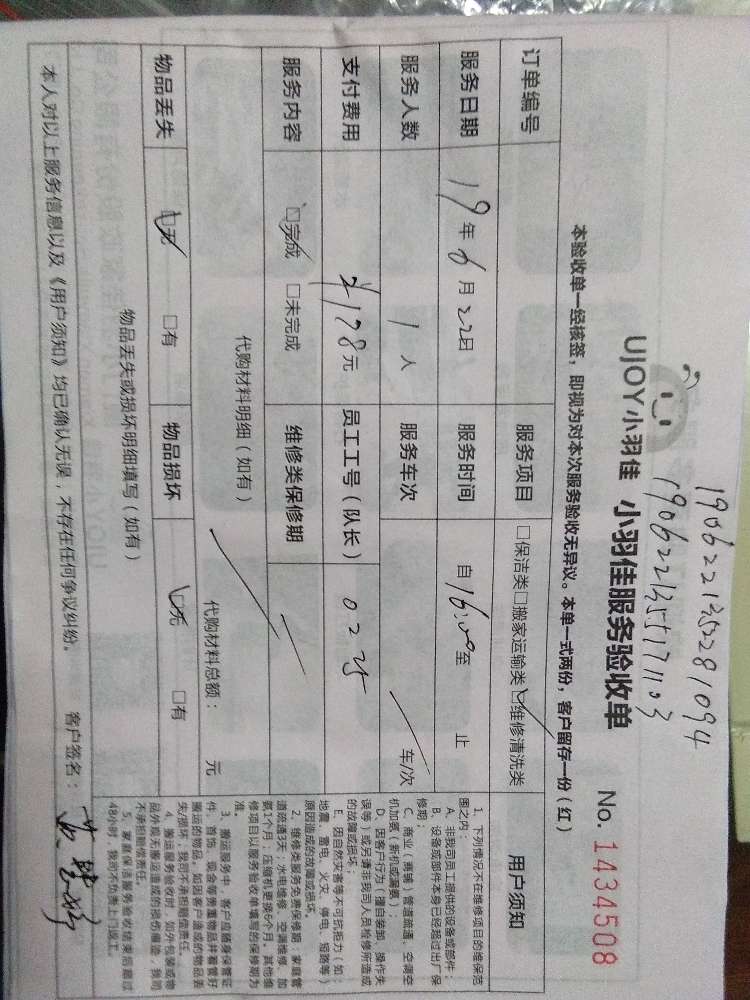 190622135228 1094
190622135517 1103
UJOY小羽佳 小羽佳服务验收单
No. 1434508
本验收单一经核签，即视为对本次服务验收无异议。本单一式两份，客户留存一份（红）
订单编号 服务项目 □保洁类□搬家运输类☑维修清洗类
服务日期 19年6月22日 服务时间 自16:00至 止
服务人数 1人 服务车次 车/次
支付费用 ¥178元 员工工号（队长） 0225
服务内容 ☑完成 □未完成 维修类保修期
代购材料明细（如有） 代购材料总额： 元
物品丢失 ☑无 □有 物品损坏 ☑无 □有
物品丢失或损坏明细填写（如有）
本人对以上服务信息以及《用户须知》均已确认无误，不存在任何争议纠纷。 客户签名：
用户须知
1、下列情况不在维修项目的维保范
围之内：
A、非我司员工提供的设备或部件；
B、设备或部件本身已经超过出厂保
修期；
C、商业（商铺）管道疏通、空调空
机加氨（新机或漏氨）；
D、因客户行为（擅自装卸、操作失
误等）或另请非我司人员检修所造成
的故障或损坏；
E、因自然灾害等不可抗拒力（如：
地震、雷电、火灾、停电、短路等）
原因造成的故障或损坏。
2、维修类服务免费保修期：家庭管
道疏通3天，水电维修、空调维修、加
氨1个月，压缩机更换6个月，其他维
修项目以服务验收单填写的保修期为
准。
3、搬运服务中，客户应随身保管证
件、首饰、现金等贵重物品并看管好
搬运的物品，如因客户造成的物品丢
失/损坏，我司不承担赔偿责任。
4、搬运服务验收时，如外包装或物
品外观无搬运造成的损伤痕迹，我司
不承担赔偿责任。
5、家庭保洁服务验收结束后超过
48小时，我司不负责上门返工。